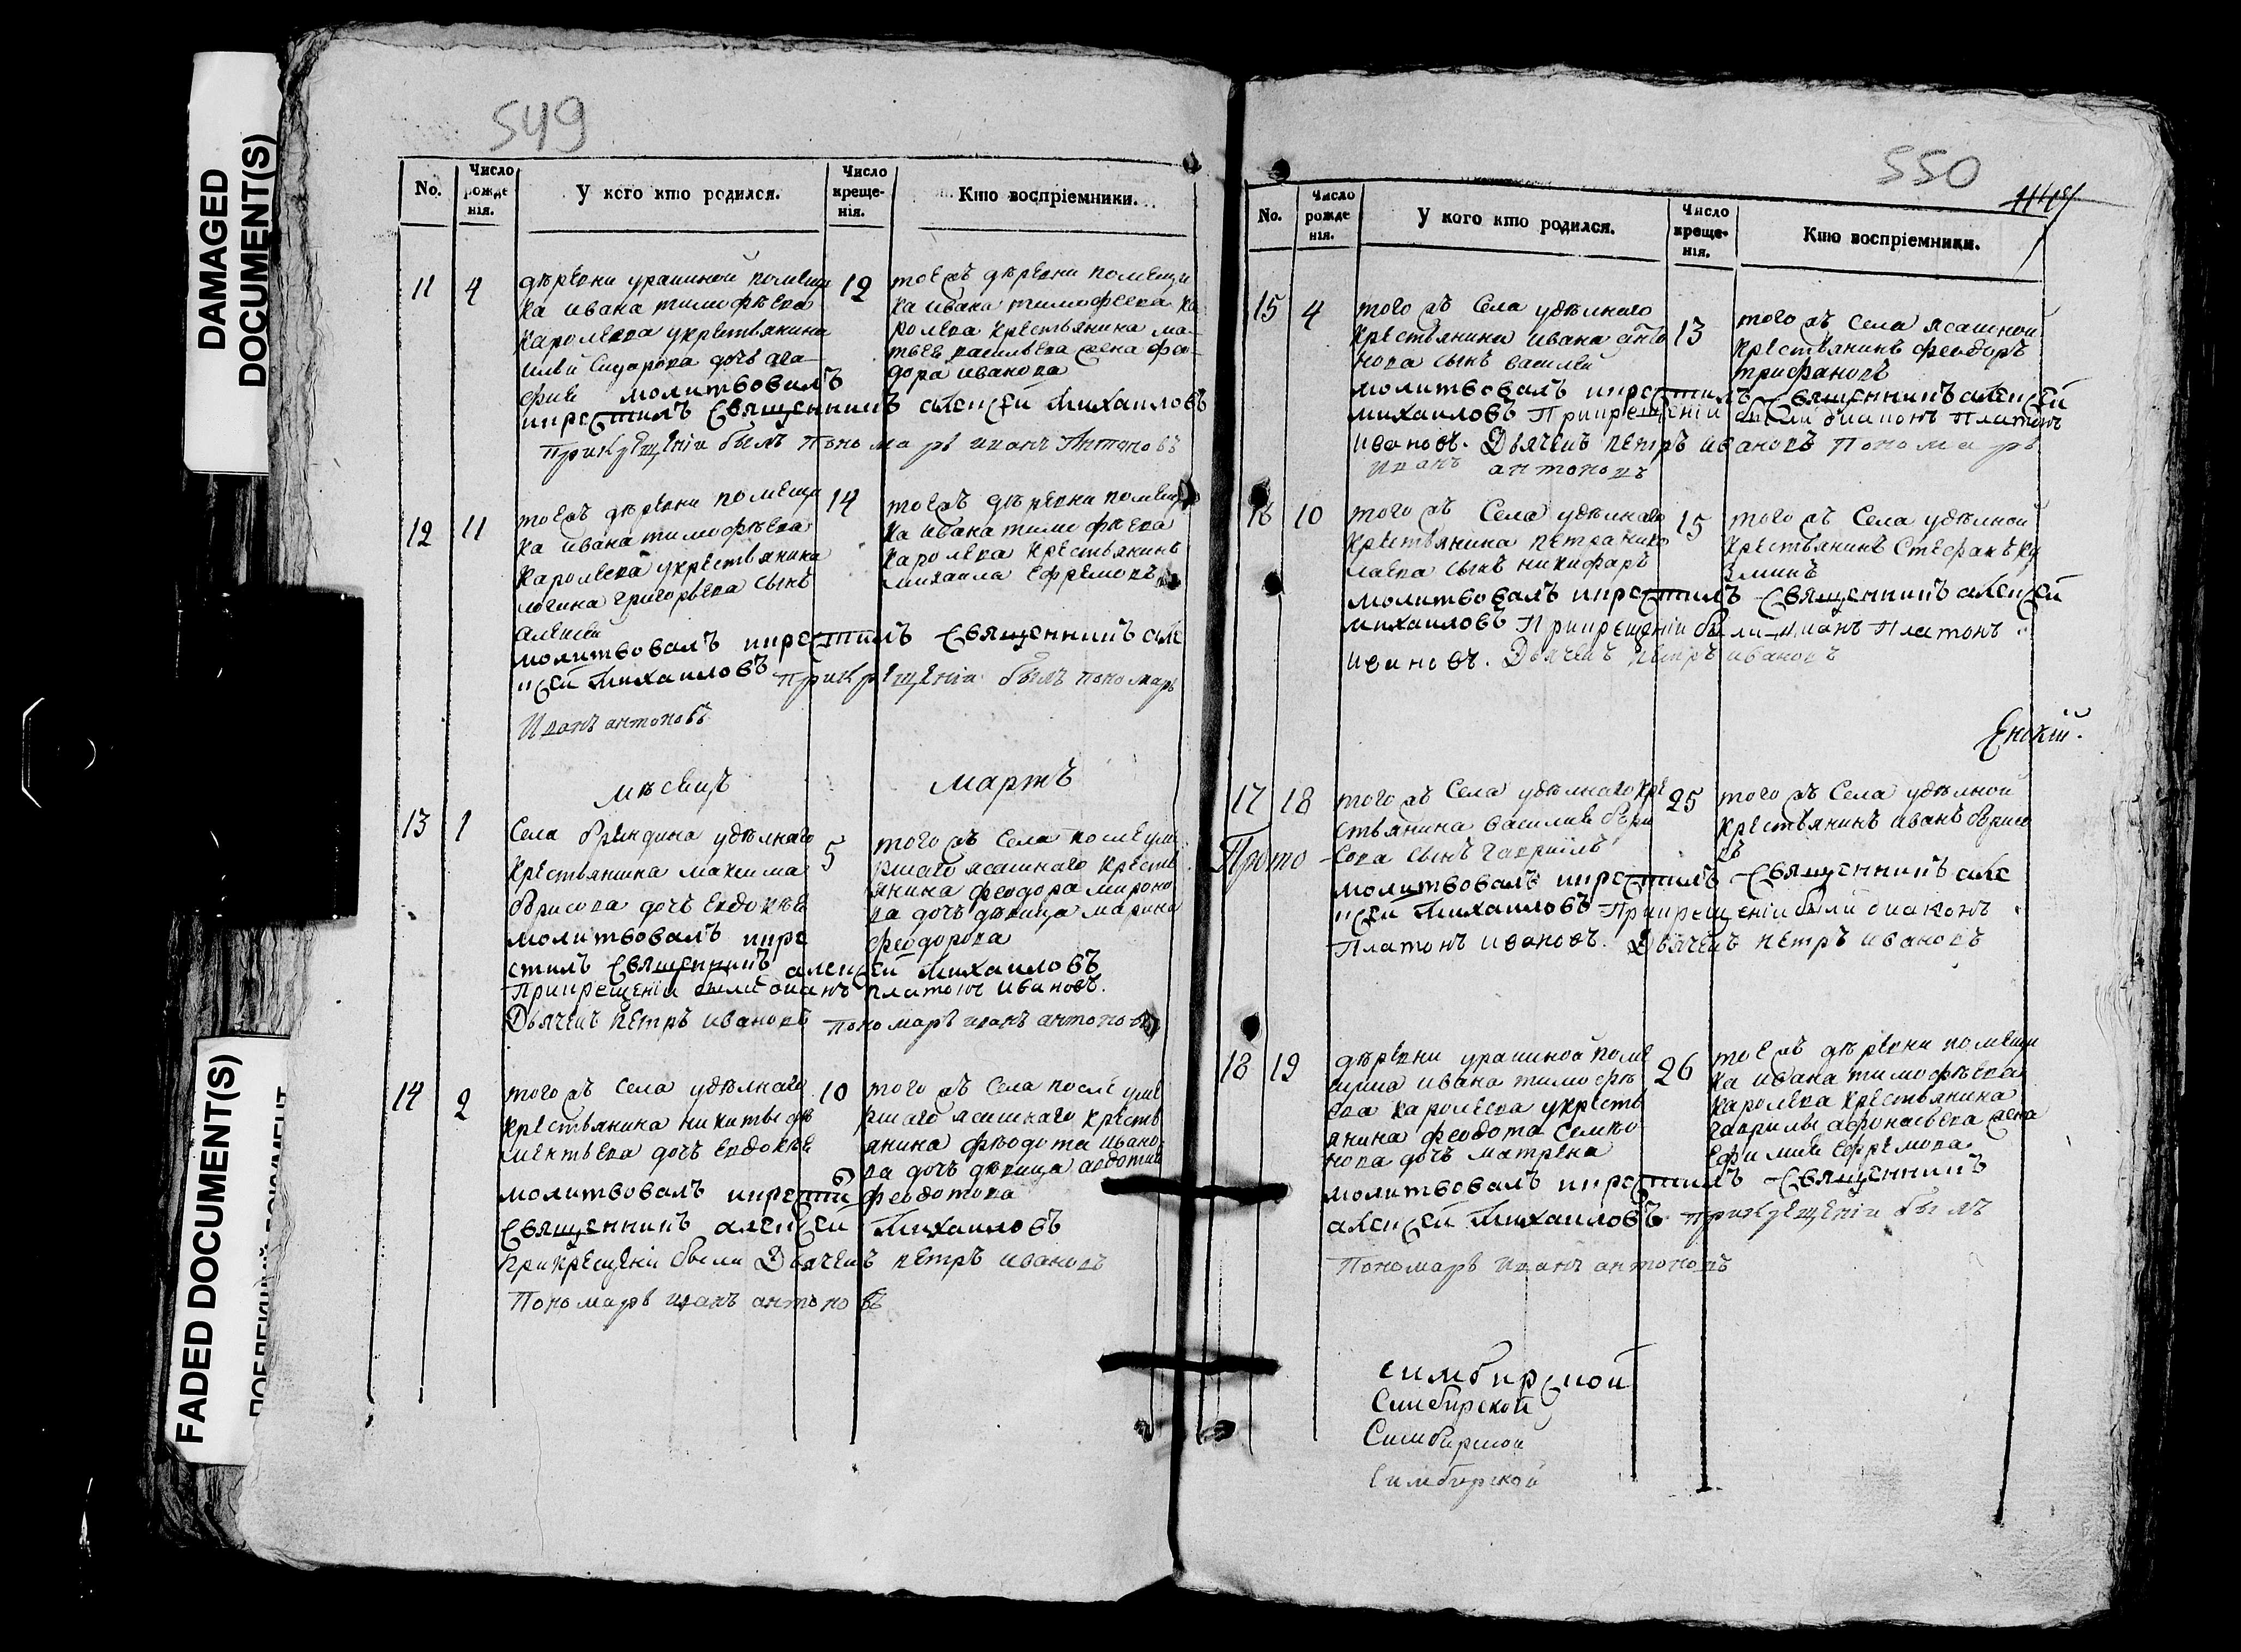 DAMAGED
DOCUMENT(S)
FADED DOCUMENT(S)
549
No.
Число
рожде
нія.
У кого кто родился.
Число
креще-
нія.
Кто воспріемники.
11 4
дѣревни урайкиной помещи
ка ивана тимофѣева
каролева укрестьянина
сидарова дочь ага
фия молитвовалъ
икрестилъ священникъ алексѣй михаиловъ
Прикрещеніи былъ пономарь иванъ Антоновъ
12
тоежъ дѣревни помещи
ка ивана тимофеева ка
ролева крестьянина ма-
твея васильева жена фео-
дора иванова
12 11
тоежъ дѣревни помещи
ка ивана тимофѣева
каролева укрестьянина
логина григорьева сынъ
алексей
молитвовалъ икрестилъ священникъ але
ксей михаиловъ Прикрещеніи былъ пономарь
Иванъ антоновъ
14
тоежъ дѣревни помещи
ка ивана тимофѣева
каролева крестьянинъ
михаила ефремовъ
мѣсецъ мартъ
13 1
Села брендина удѣлнаго
крестьянина максима
борисова дочь евдокѣя
молитвовалъ икре
стилъ священникъ алексѣй михаиловъ
Прикрещеніи были диаконъ платонъ ивановъ.
Дьячекъ петръ ивановъ Пономарь иванъ антоновъ
5
того жъ села после уме
ршаго ясашнаго крестъ
янина феодора мироно
ва дочъ дѣвица марина
феодорова
14 2
того жъ села удѣлнаго
крестьянина никиты
дочъ евдокѣя
молитвовалъ икрестилъ
священникъ алексѣй михаиловъ
Прикрещеніи были Дьячекъ петръ ивановъ
Пономарь иванъ антоновъ
10
того жъ села после уме
ршаго ясашнаго крестъ
янина феодота ивано
ва дочь дѣвица авдотия
феодотова
550
No.
Число
рожде
нія.
У кого кто родился.
Число
креще-
нія.
Кто воспріемники.
15 4
того жъ села удѣлнаго
крестьянина ивана анто
нова сынъ василей
молитвовалъ икрестилъ священникъ алексѣй
михаиловъ Прикрещеніи были диаконъ Платонъ
ивановъ. Дьячекъ петръ ивановъ Пономарь
Иванъ антоновъ
13
того жъ села ясашной
крестьянинъ феодоръ
трифановъ
16 10
того жъ села удѣлнаго
крестьянина петра нико
лаева сынъ никифаръ
молитвовалъ икрестилъ священникъ алексѣй
михаиловъ Прикрещеніи были диаконъ Платонъ
ивановъ. Дьячекъ петръ ивановъ
15
того жъ села удѣлной
крестьянинъ Стефанъ ку
зминъ
17 18
того жъ села удѣлнаго кре
стьянина василия бори
сова сынъ гавриилъ
молитвовалъ икрестилъ священникъ але
ксѣй михаиловъ Прикрещеніи были диаконъ
Платонъ ивановъ. Дьячекъ петръ ивановъ
25
того жъ села удѣлной
крестьянинъ иванъ борисо
въ
Прото
18 19
дѣревни урайкиной поме
щика ивана тимофѣ
ева каролева укресть
янина феодота семіо
нова дочь матрена
молитвовалъ икрестилъ священникъ
алексѣй михаиловъ прикрещеніи былъ
Пономарь иванъ антоновъ
26
тоежъ дѣревни помещи
ка ивана тимофѣева
каролева крестьянина
гаврилы афонасьева жена
ефимия ефремова
симбирской
Симбирской
Симбирской
Симбирской